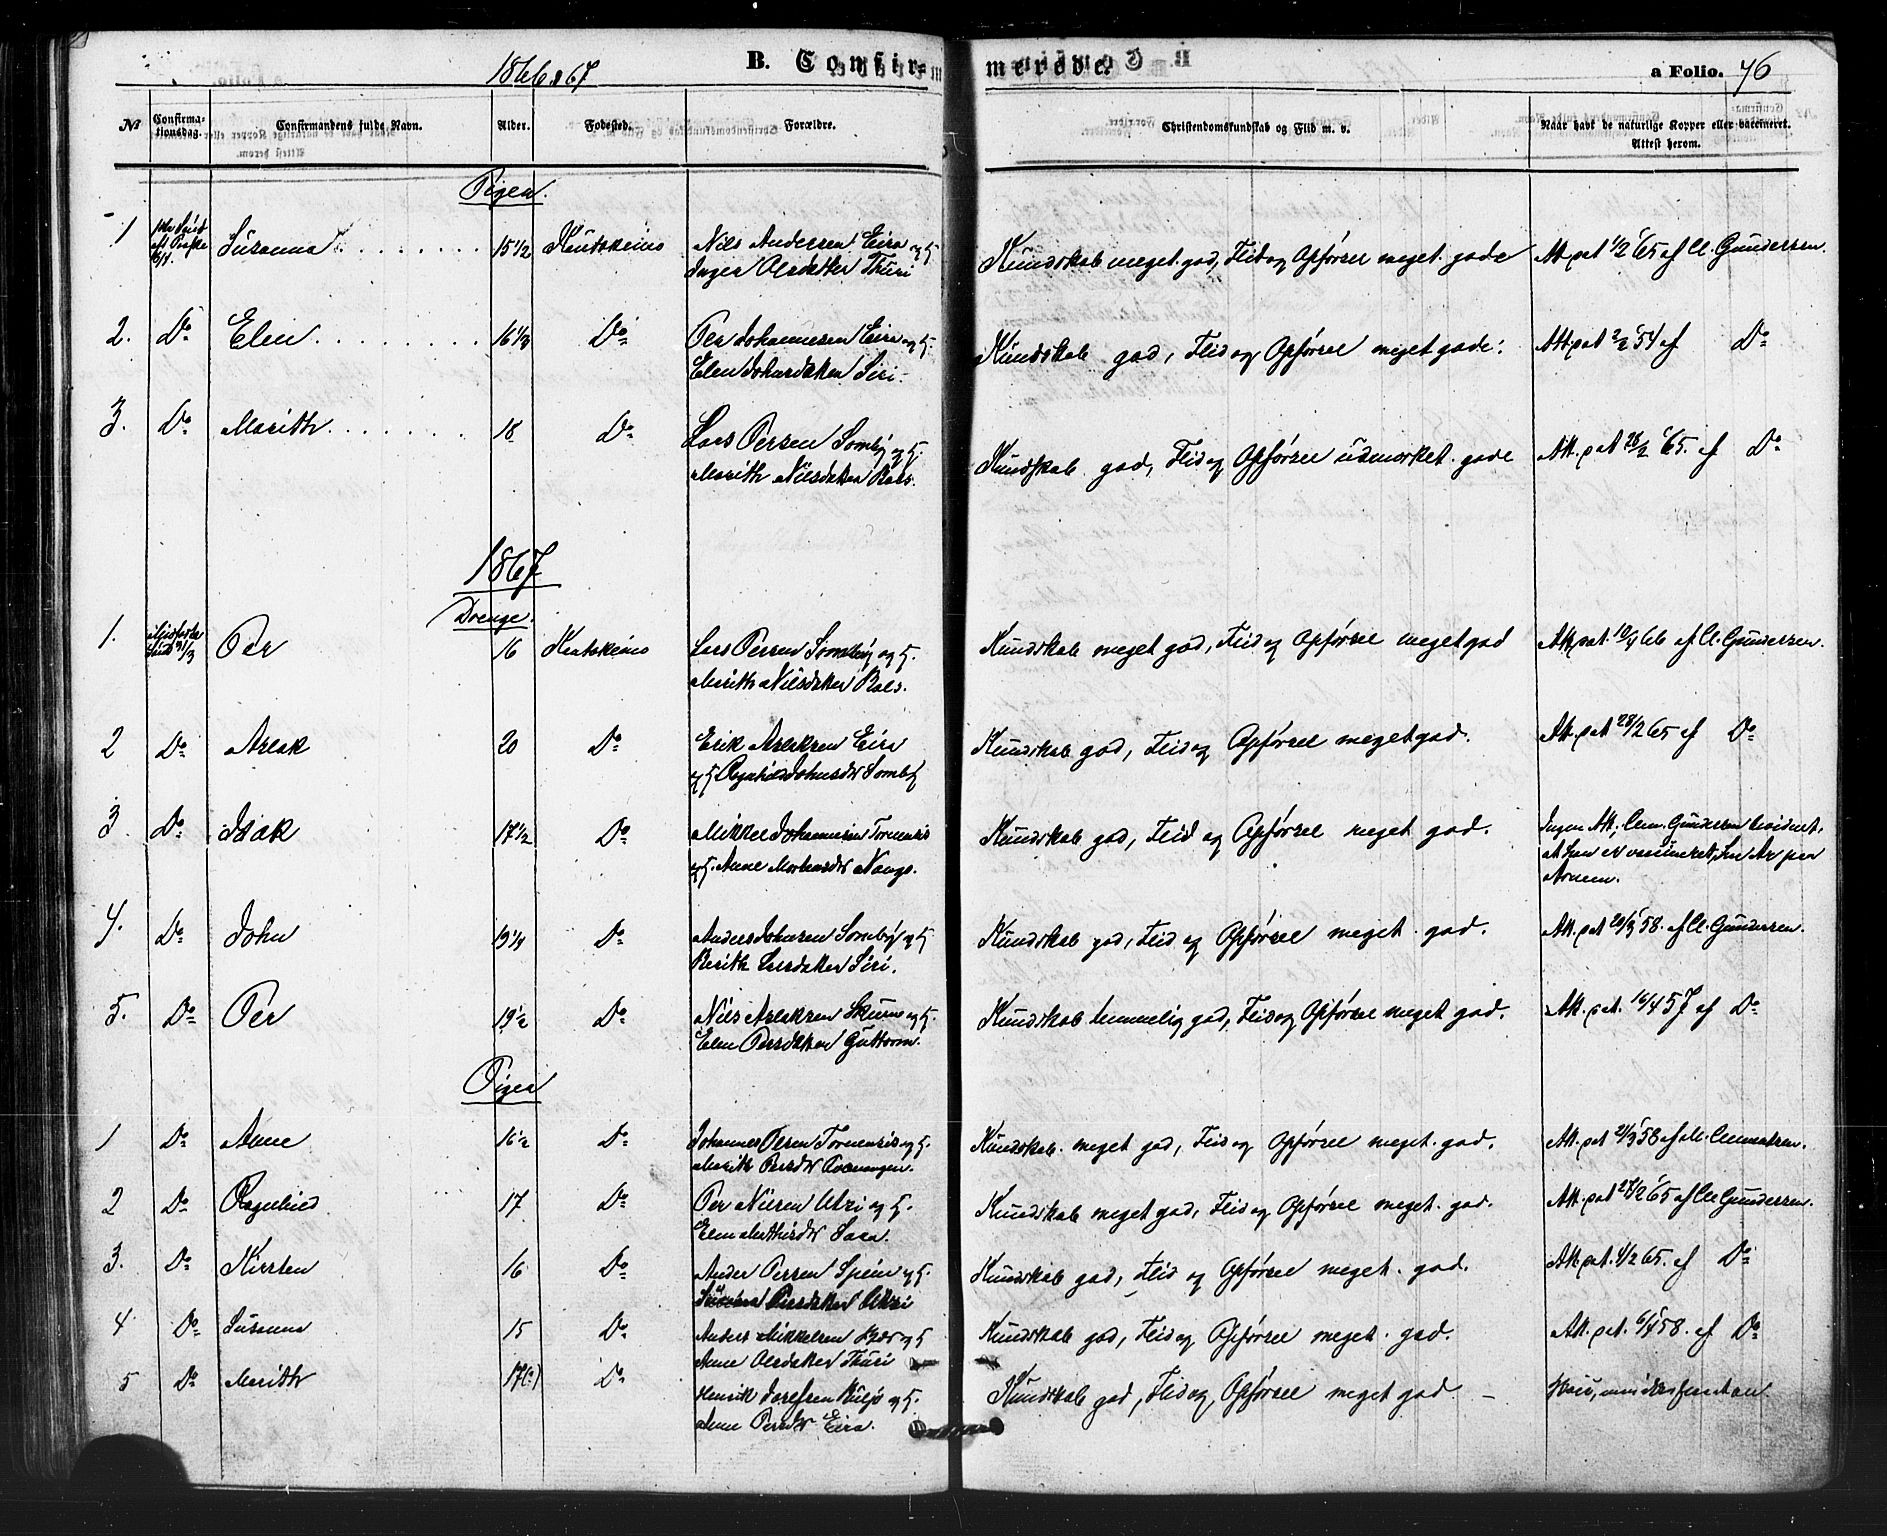 1866 & 67 B. Confirmerede. a Folio. 76
№ Confirmationsdag. Confirmandens fulde Navn. Alder. Fødested. Forældre. Christendomskundskab og Flid m. v. Naar havt de naturlige Kopper eller vaccineret. Attest herom.
Piger.
1 Susanna 15 1/2 Kautokeino Nils Andersen Eira og H. Kundskab meget god, Flid og Opførsel meget gode Att. dat 1/2 65 af Cl. Gundersen.
Inger Olsdatter Thuri
2. Do Elen 16 1/3 Do Per Johannesen Eira og H. Kundskab god, Flid og Opførsel meget gode. Att. dat 2/2 54 af Do
Elen Johnsdatter Siri.
3. Do Marith 18 Do Lars Persen Somby og H. Kundskab god, Flid og Opførsel udmærket gode Att. dat 26/2 65. af Do
Marith Nilsdatter Bals.
1867
Drenge.
1. 31/3 Per 16 Kautokeino Lars Persen Somby og H. Kundskab meget god, Flid og Opførsel meget god Att. dat. 10/4 66 af Cl. Gundersen.
Marith Nilsdatter Bals.
2 Do Aslak 20 Do Erik Aslaksen Eira Kundskab god, Flid og Opførsel meget god. Att. dat 28/2 65 af Do
og H Ragnhild Johnsdr Somby
3 Do Isak 17 1/2 Do Mikkel Johannesen Tornensis Kundskab god, Flid og Opførsel meget god. Ingen Att. Clem. Gundersen bevidnet,
og H. Anne Mortensdr Nango. at han er vaccineret, har Ar paa
Armen.
4. Do John 19 1/4 Do Anders Johnsen Somby og H Kundskab god, Flid og Opførsel meget god. Att. dat 20/3 58. af Cl. Gundersen.
Berith Larsdatter Siri.
5. Do Per 19 1/2 Do Nils Aslaksen Skum og H. Kundskab temmelig god, Flid og Opførsel meget god. Att. dat. 16/4 57 af Do
Elen Persdatter Guttorm.
Piger
1 Do Anne 16 1/2 Do Johannes Olsen Tornensis og H. Kundskab meget god, Flid og Opførsel meget god. Att. dat 21/3 58 af Cl. Clemetsen.
Marith Persdr Kvænangen.
2 Do Ragnhild 17 Do Per Nilsen Utsi og H. Kundskab meget god, Flid og Opførsel meget god. Att. dat 27/2 65 af Cl Gundersen.
Elen Mathisdr Sara.
3. Do Kirsten 16 Do Anders Persen Spein og H. Kundskab god, Flid og Opførsel meget god. Att. dat. 4/2 65. af Do
Susanna Persdatter Utsi
4 Do Susanna 15 Do Anders Mikkelsen Bær og H Kundskab god, Flid og Opførsel meget god. Att. dat. 6/4 58. af Do
Anne Olsdatter Thuri
5 Do Marith 17 Do Henrik Josefsen Kuljo og H. Kundskab god, Flid og Opførsel meget god
Anne Persdr Eira.